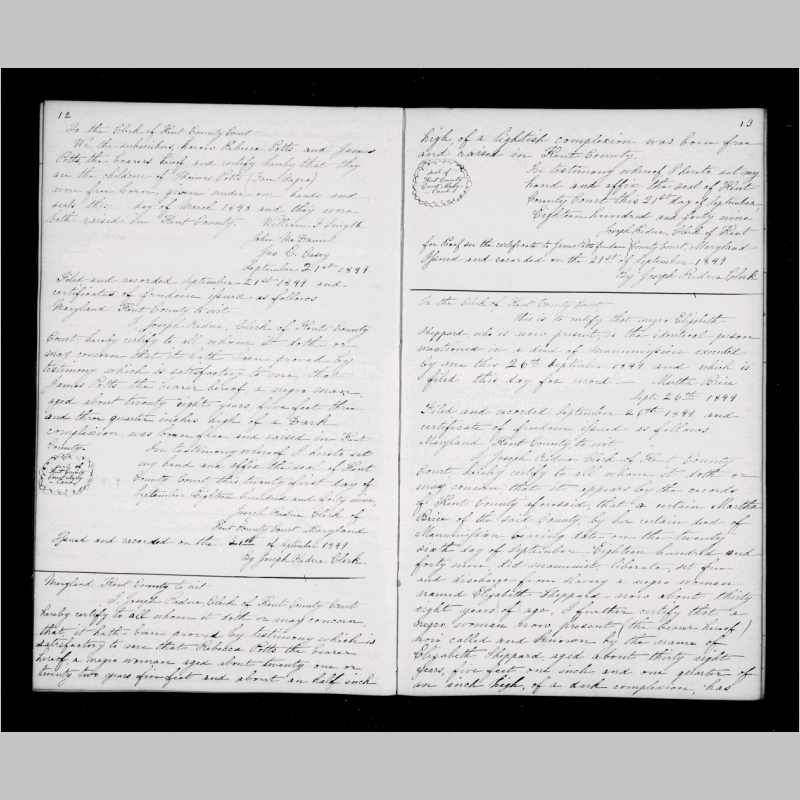 12
To the Clerk of Kent County Court
We the subscribers, know Rebecca Potts and James
Potts the bearers hereof and certify hereby that they
are the children of Potts (Free Negro)
were free born, given under our hands and
seals this day of March 1849 and they were
both raised in Kent County. William S. Smyth
John
Jno C.
September 21st 1849
Filed and recorded September 21st 1849 and
certificates of freedom issued as follows
Maryland Kent County to wit
I Joseph Redue, Clerk of Kent County
Court hereby certify to all whom it doth or
may concern that it hath been proved by
testimony which is satisfactory to me that
James Potts the bearer hereof a negro man
aged about twenty eight years, five feet three
and three quarter inches high of a Dark
complexion was born free and raised in Kent
County. In testimony whereof I hereto set
my hand and affix the seal of Kent
County Court this twenty first day of
September Eighteen hundred and forty nine
Joseph Redue Clerk of
Kent County Court Maryland
Issued and recorded on the 21st of September 1849
By Joseph Redue Clerk
seal of
Kent County
Court Maryland
Maryland, Kent County to wit
I Joseph Redue, Clerk of Kent County Court
hereby certify to all whom it doth or may concern
that it hath been proved by testimony which is
satisfactory to me that Rebecca Potts the bearer
hereof a negro woman aged about twenty one or
twenty two years five feet and about an half inch
13
high of a lightish complexion was born free
and raised in Kent County.
In testimony whereof I hereto set my
hand and affix the seal of Kent
County Court this 21st day of September
Eighteen hundred and forty nine
Joseph Redue, Clerk of Kent
seal of
Kent County
Court
for Proof see the certificate to James Potts freedom County Court, Maryland
Issued and recorded on the 21st of September 1849
By Joseph Redue Clerk
To the Clerk of Kent County Court
this is to certify that negro Elizabeth
Sheppard who is now present, is the identical person
mentioned in a deed of manumission executed
by me this 26th September 1849 and which is
filed this day for record Martha Brice
Sept. 26th 1849
Filed and recorded September 26th 1849 and
certificate of freedom issued as follows
Maryland Kent County to wit
I Joseph Redue Clerk of Kent County
Court hereby certify to all whom it doth or
may concern, that it appears by the records
of Kent County aforesaid, that a certain Martha
Brice of the said County, by her certain deed of
Manumission bearing date on the twenty
sixth day of September Eighteen hundred and
forty nine, did manumit, liberate, set free
and discharge from slavery a negro woman
named Elizabeth Sheppard now about thirty
eight years of age, I further certify that a
negro woman now present (the bearer hereof)
now called and known by the name of
Elizabeth Sheppard aged about thirty eight
years, five feet one inch and one quarter of
an inch high, of a dark complexion, has